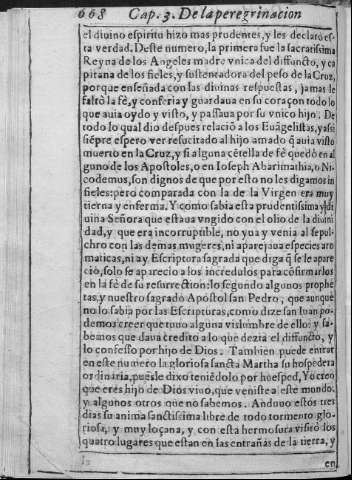 668 Cap. 3. De la peregrinacion
el diuino espiritu hizo mas prudentes, y les declaró es-
ta verdad. Deste numero, la primera fue la sacratissima
Reyna de los Angeles madre vnica del diffuncto, y ca
pitana de los fieles, y sustentadora del peso de la Cruz,
porque enseñada con las diuinas respuestas, jamas le
faltò la fè, y conferia y guardaua en su coraçon todo lo
que auia oydo y visto, y passaua por su vnico hijo. De
todo lo qual dio despues relació a los Euãgelistas, y assi
siẽpre espero ver resucitado al hijo amado q̃ auia visto
muerto en la Cruz, y si alguna cẽtella de fè quedò en al
guno de los Apostoles, o en Ioseph Abarimathia, o Ni-
codemus, son dignos de que por esto no les digamos in
fieles: pero comparada con la de la Virgen era muy
tierna y enferma. Y como sabia esta prudentissima y di
uina Señora que estaua vngido con el olio de la diuini
dad, y que era incorruptible, no yua y venia al sepul-
chro con las demas mugeres, ni aparejaua especies aro
maticas, ni ay Escriptura sagrada que diga q̃ se le apare
ciò, solo se aparecio a los incredulos para cõfirmarlos
en la fè de su resurrection: lo segundo algunos prophe
tas, y nuestro sagrado Apostol san Pedro, que aunque
no lo sabia por las Escripturas, como dize san Iuan po-
demos creer que tuuo alguna vislumbre de ello: y sa-
bemos que daua credito a lo que dezia el diffuncto, y
lo confesso por hijo de Dios. Tambien puede entrar
en este numero la gloriosa sancta Martha su hospedera
ordinaria, pues le dixo teniẽdolo por huesped, Yo creo
que eres hijo de Dios viuo, que veniste a este mundo:
y algunos otros que no sabemos. Anduuo estos tres
dias su anima sanctissima libre de todo tormento glo-
riosa, y muy loçana, y con esta hermosura visitò los
quatro lugares que estan en las entrañas de la tierra, y
en